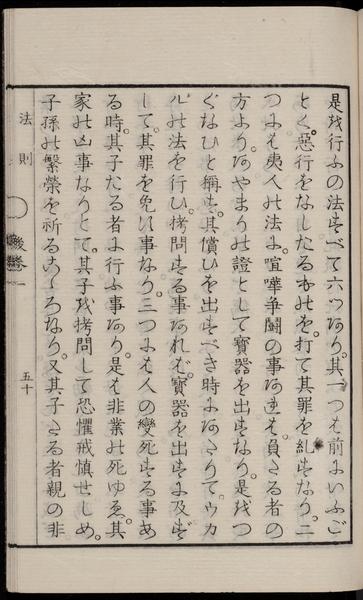 是を行ふの法すべて六つあり。其一つは前にいふご
とく。惡行をなしたるものを打て其罪を糺すなり。二
つには夷人の法に。喧嘩爭鬪の事あれば。負たる者の
方より。あやまりの證として寳器を出すなり。是をつ
ぐなひと稱す。其償ひを出すべき時にあたりて。ウカ
ルの法を行ひ。拷問する事あれば。寳器を出すに及ばず
して。其罪を免れし事なり。三つには人の變死する事あ
る時。其子たる者に行ふ事あり。是は非業の死ゆゑ。其
家の凶事なりとて。其子を拷問して恐懼戒愼せしめ。
子孫の繁榮を祈るこゝろなり。又其子たる者親の非
法則
五十